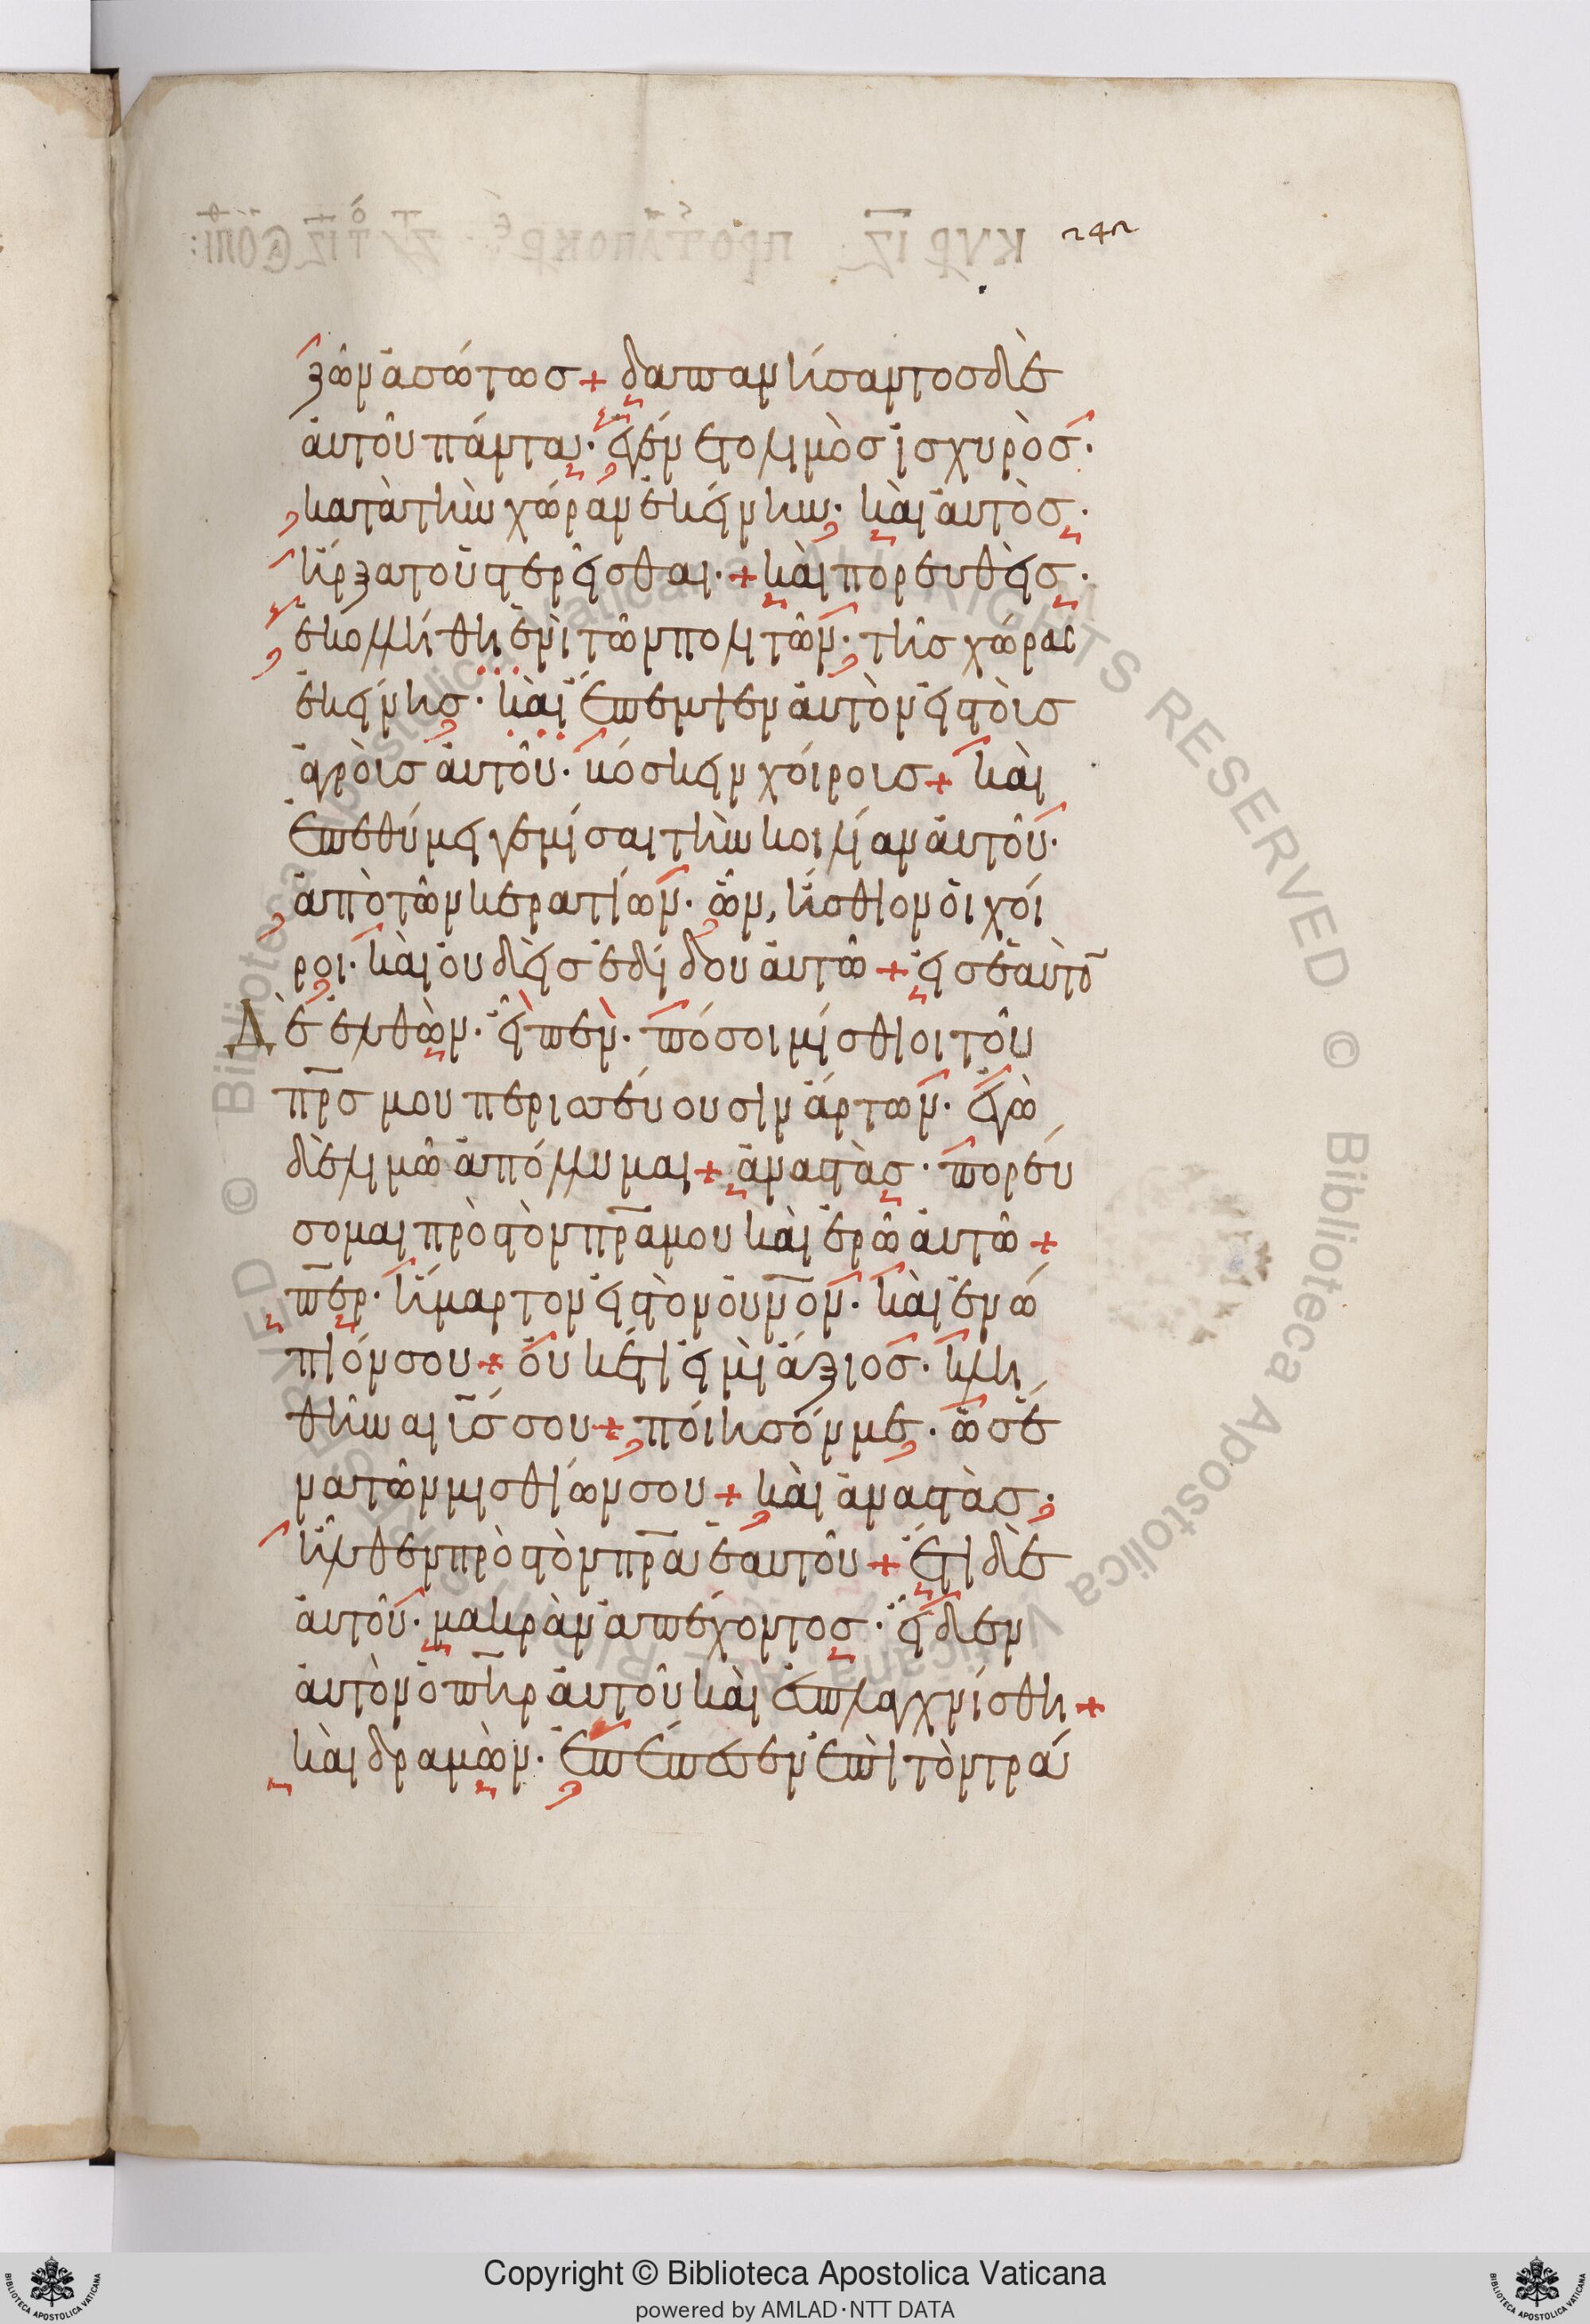 242
ζῶν ἀσώτως + δαπανήσαντος δὲ
αὐτοῦ πάντα· ἐγένετο λιμὸς ἰσχυρὸς·
κατὰ τὴν χώραν ἐκείνην· καὶ αὐτὸς·
ἤρξατο ὑστερεῖσθαι·+ καὶ πορευθεὶς·
ἐκολλήθη ἑνὶ τῶν πολιτῶν· τῆς χώρας
ἐκείνης· καὶ ἔπεμψεν αὐτὸν εἰς τοὺς
ἀγροὺς αὐτοῦ· βόσκειν χοίρους + καὶ
ἐπεθύμει γεμίσαι τὴν κοιλίαν αὐτοῦ·
ἀπὸ τῶν κερατίων· ὧν, ἤσθιον οἱ χοῖ
ροι· καὶ οὐδεὶς ἐδίδου αὐτῶ + εἰς ἑαυτὸ̅
Δὲ ἐλθὼν· εἶπεν· πόσοι μίσθιοι τοῦ
πρ̅ς μου περισσεύουσιν ἄρτων· ἐγὼ
δὲ λιμῶ ἀπόλλυμαι + ἀναστὰς· πορεύ
σομαι πρὸς τὸν πρ̅α μου καὶ ἐρῶ αὐτῶ +
πε̅ρ· ἥμαρτον εἰς τὸν οὐν̅ον· καὶ ἐνώ
πιόν σου + οὐκέτι εἰμὶ ἄξιος· κλη
θῆναι υἱ̅ός σου + ποίησόν με· ὡς ἕ
να τῶν μισθίων σου + καὶ ἀναστὰς·
ἦλθεν πρὸς τὸν πρ̅α ἑαυτοῦ + ἔτι δὲ
αὐτοῦ· μακρὰν ἀπέχοντος· εἶδεν
αὐτὸν ὁ πη̅ρ αὐτοῦ καὶ ἐσπλαγχνίσθη +
καὶ δραμὼν· ἐπέπεσεν ἐπὶ τὸν τρά
Copyright © Biblioteca Apostolica Vaticana
powered by AMLAD·NTT DATA